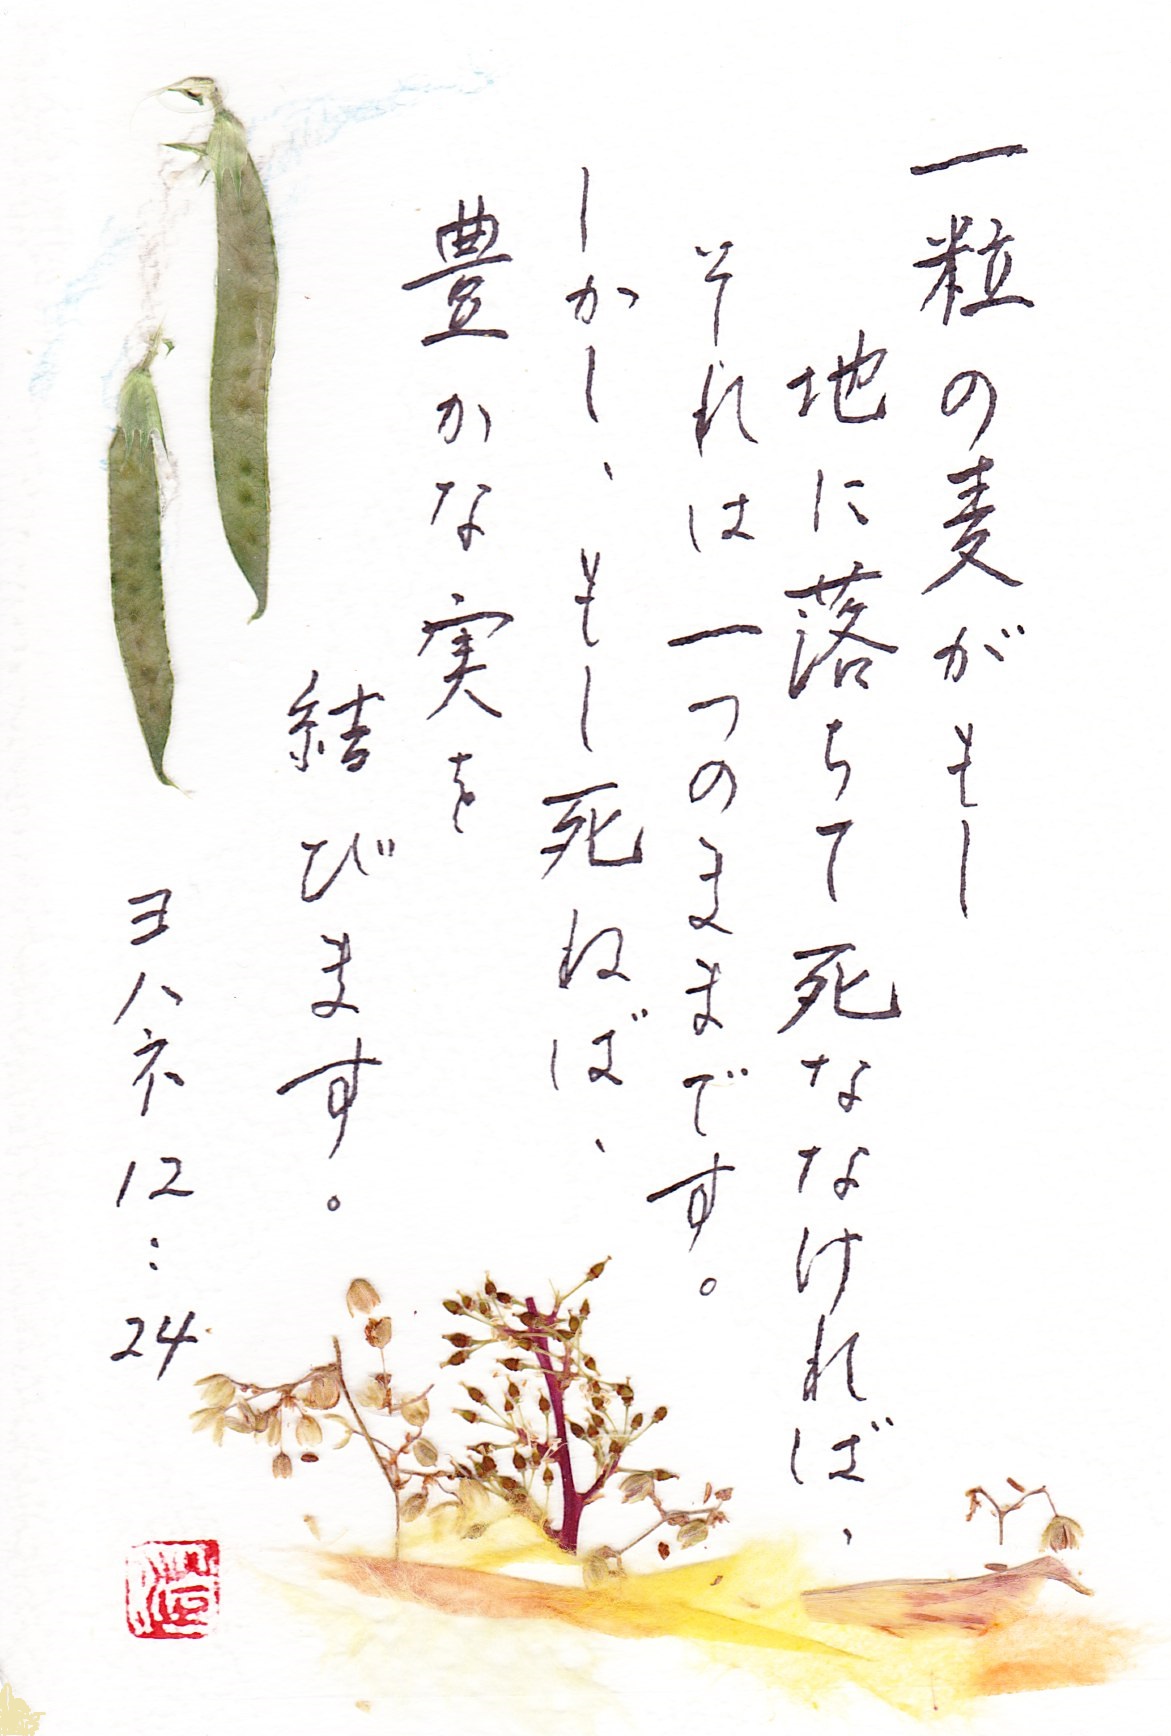 一粒の麦がもし
地に落ちて死ななければ、
それは一つのままです。
しかし、もし死ねば、
豊かな実を
結びます。
ヨハネ12:24